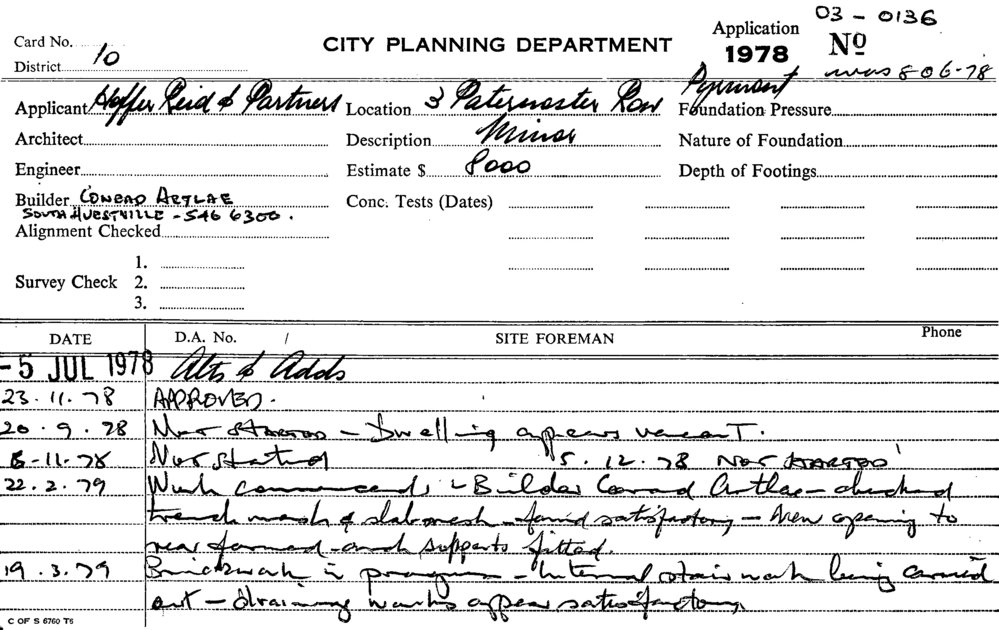 03 - 0136
Card No.
CITY PLANNING DEPARTMENT
Application
1978 No
District 10
was 806-78
Applicant Hoffer Reid & Partners Location 3 Paternoster Row Pyrmont
Foundation Pressure
Architect Description Minor Nature of Foundation
Engineer Estimate $ 8000 Depth of Footings
Builder CONRAD ARTLAE Conc. Tests (Dates)
SOUTH HURSTVILLE - 546 6300.
Alignment Checked
1.
Survey Check 2.
3.
DATE D.A. No. / SITE FOREMAN Phone
-5 JUL 1978 Alts & Adds
23.11.78 APPROVED.
20.9.78 Not STARTED - Dwelling appears vacant.
8-11-78 Not Started 5.12.78 Not STARTED
22.2.79 Work commenced - Builder Conrad Artlae - checked
trench mesh & slab mesh - found satisfactory - New opening to
rear formed and supports fitted.
19.3.79 Brickwork in progress - Internal stair work being carried
out - drainage works appear satisfactory.
C OF S 6760 T5